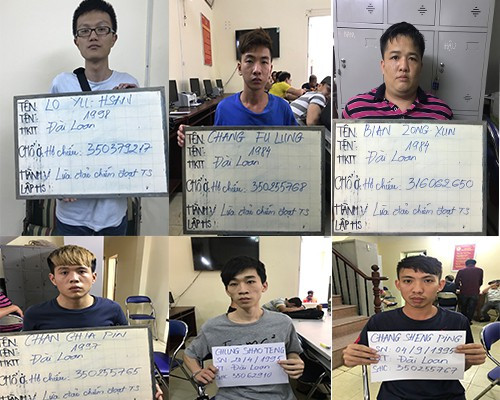 TÊN: LO YU-HSAN
TÊN: 1998
HKTT Đài Loan
CHỖ Ở: H chiếu: 350379217
HÀNH VI Lừa đảo chiếm đoạt TS
LẬP HS:
TÊN: CHANG FU LUNG
TÊN: 1984
HKTT Đài Loan
CHỖ Ở: H chiếu: 350255768
HÀNH VI Lừa đảo chiếm đoạt TS
LẬP HS
TÊN: BIAN ZONG XUN
TÊN: 1984
HKTT Đài Loan
CHỖ Ở: H chiếu: 316062650
HÀNH VI Lừa đảo chiếm đoạt TS
LẬP HS:
TÊN CHAN CHIA PIN
TÊN: 1997
HKTT Đài Loan
CHỖ Ở H chiếu: 350255765
HÀNH VI Lừa đảo chiếm đoạt TS
CHUNG SHAO TENG
Đài Loan
CHANG SHENG PING
SN 04/9/1995
Đài Loan
350255767